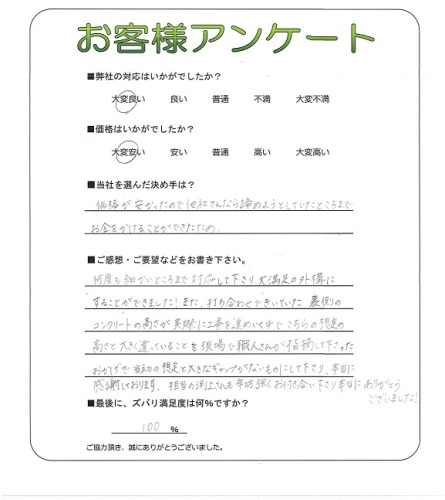 お客様アンケート
■弊社の対応はいかがでしたか？
大変良い 良い 普通 不満 大変不満
■価格はいかがでしたか？
大変安い 安い 普通 高い 大変高い
■当社を選んだ決め手は？
価格が安かったので他社さんなら諦めようとしていたところまで
お金をかけることができたため。
■ご感想・ご要望などをお書き下さい。
何度も細かいところまで対応して下さり、大満足の外構に
することができました！また、打ち合わせできいていた 裏側の
コンクリートの高さが実際に工事を進めていく中でこちらの想定の
高さと大きく違っていることを現場で職人さんが指摘して下さった
おかげで当初の想定と大きなギャップがないものにして下さり、本当に
感謝しております。担当の さんも 強くお付き合い下さり本当にありがとう
ございました！
■最後に、ズバリ満足度は何%ですか？
100 %
ご協力頂き、誠にありがとうございました。